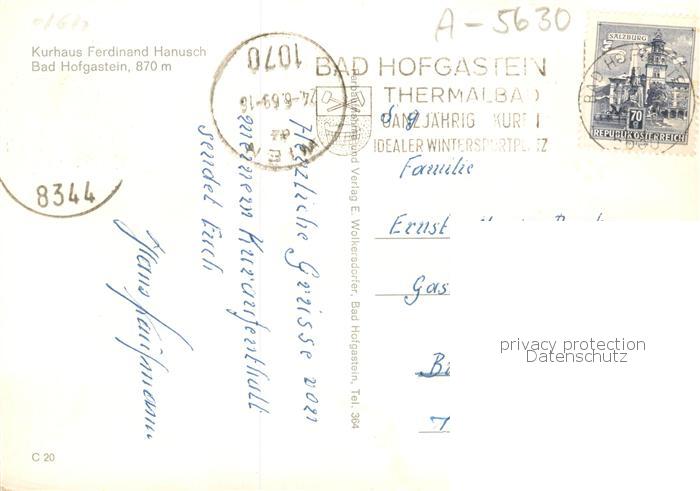 A-5630
Kurhaus Ferdinand Hanusch
Bad Hofgastein, 870 m
1070
24.-6.69-16
WIEN
8344
BAD HOFGASTEIN
THERMALBAD
GANZJÄHRIG KURB
IDEALER WINTERSPORTPLATZ
SALZBURG
70
REPUBLIK ÖSTERREICH
Farbaufnahme und Verlag E. Wolkersdorfer, Bad Hofgastein, Tel. 364
Herzliche Grüsse von
meinem Kuraufenthalt
sendet Euch
Hans Kaufmann
S. g.
Familie
Ernst
Gas
privacy protection
Datenschutz
C 20